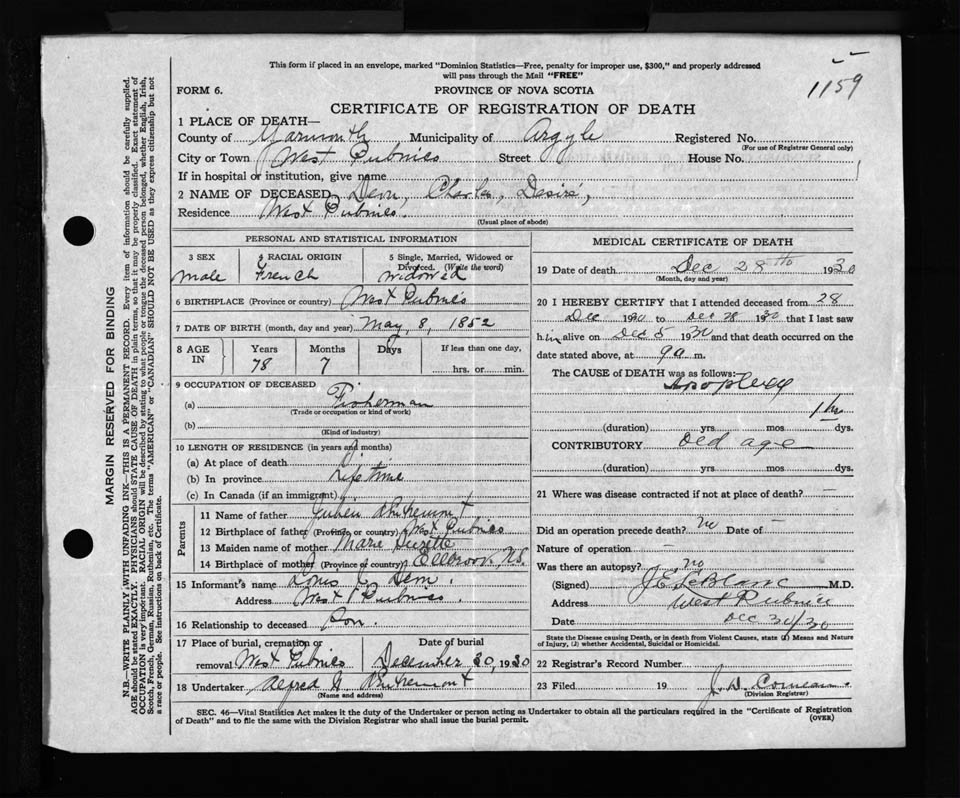 1159
This form if placed in an envelope, marked "Dominion Statistics—Free, penalty for improper use, $300," and properly addressed
will pass through the Mail "FREE"
FORM 6. PROVINCE OF NOVA SCOTIA
CERTIFICATE OF REGISTRATION OF DEATH
1 PLACE OF DEATH—
County of Yarmouth Municipality of Argyle Registered No.
(For use of Registrar General only)
City or Town West Pubnico Street House No.
If in hospital or institution, give name
2 NAME OF DECEASED Deon, Charles, Desire,
Residence West Pubnico.
(Usual place of abode)
PERSONAL AND STATISTICAL INFORMATION
3 SEX 4 RACIAL ORIGIN 5 Single, Married, Widowed or
Divorced. (Write the word)
Male French Widowed
6 BIRTHPLACE (Province or country) West Pubnico
7 DATE OF BIRTH (month, day and year) May, 8, 1852
8 AGE IN Years Months Days If less than one day,
78 7 hrs. or min.
9 OCCUPATION OF DECEASED
(a) Fisherman
(Trade or occupation or kind of work)
(b)
(Kind of industry)
10 LENGTH OF RESIDENCE (in years and months)
(a) At place of death
(b) In province Life time
(c) In Canada (if an immigrant)
Parents
11 Name of father
12 Birthplace of father (Province or country) West Pubnico
13 Maiden name of mother Marie
14 Birthplace of mother (Province or country) Eelbrook, N.S.
15 Informant's name Louis C. Deon.
Address West Pubnico.
16 Relationship to deceased Son.
17 Place of burial, cremation or Date of burial
removal West Pubnico December, 30, 1930
18 Undertaker Alfred
(Name and address)
MEDICAL CERTIFICATE OF DEATH
19 Date of death Dec 28th 1930
(Month, day and year)
20 I HEREBY CERTIFY that I attended deceased from 28
Dec 1930 to Dec 28 1930 that I last saw
him alive on Dec 5 1930 and that death occurred on the
date stated above, at 9 a m.
The CAUSE of DEATH was as follows:
Apoplexy
1 hr
(duration) yrs mos dys.
CONTRIBUTORY Old age
(duration) yrs mos dys.
21 Where was disease contracted if not at place of death?
Did an operation precede death? no Date of —
Nature of operation —
Was there an autopsy? no
(Signed) J E LeBlanc M.D.
Address West Pubnico
Date Dec 30/30
State the Disease causing Death, or in death from Violent Causes, state (1) Means and Nature
of Injury, (2) whether Accidental, Suicidal or Homicidal.
22 Registrar's Record Number
23 Filed 19
(Division Registrar)
SEC. 46—Vital Statistics Act makes it the duty of the Undertaker or person acting as Undertaker to obtain all the particulars required in the "Certificate of Registration
of Death" and to file the same with the Division Registrar who shall issue the burial permit. (OVER)
MARGIN RESERVED FOR BINDING
N.B.—WRITE PLAINLY WITH UNFADING INK—THIS IS A PERMANENT RECORD. Every item of information should be carefully supplied.
AGE should be stated EXACTLY. PHYSICIANS should STATE CAUSE OF DEATH in plain terms, so that it may be properly classified. Exact statement of
OCCUPATION is very important. RACIAL ORIGIN will be described by stating to what people or tongue the deceased person belonged, whether English, Irish,
Scotch, French, German, Russian, Ruthenian, etc. The terms "AMERICAN" or "CANADIAN" SHOULD NOT BE USED as they express citizenship but not
a race or people. See instructions on back of Certificate.